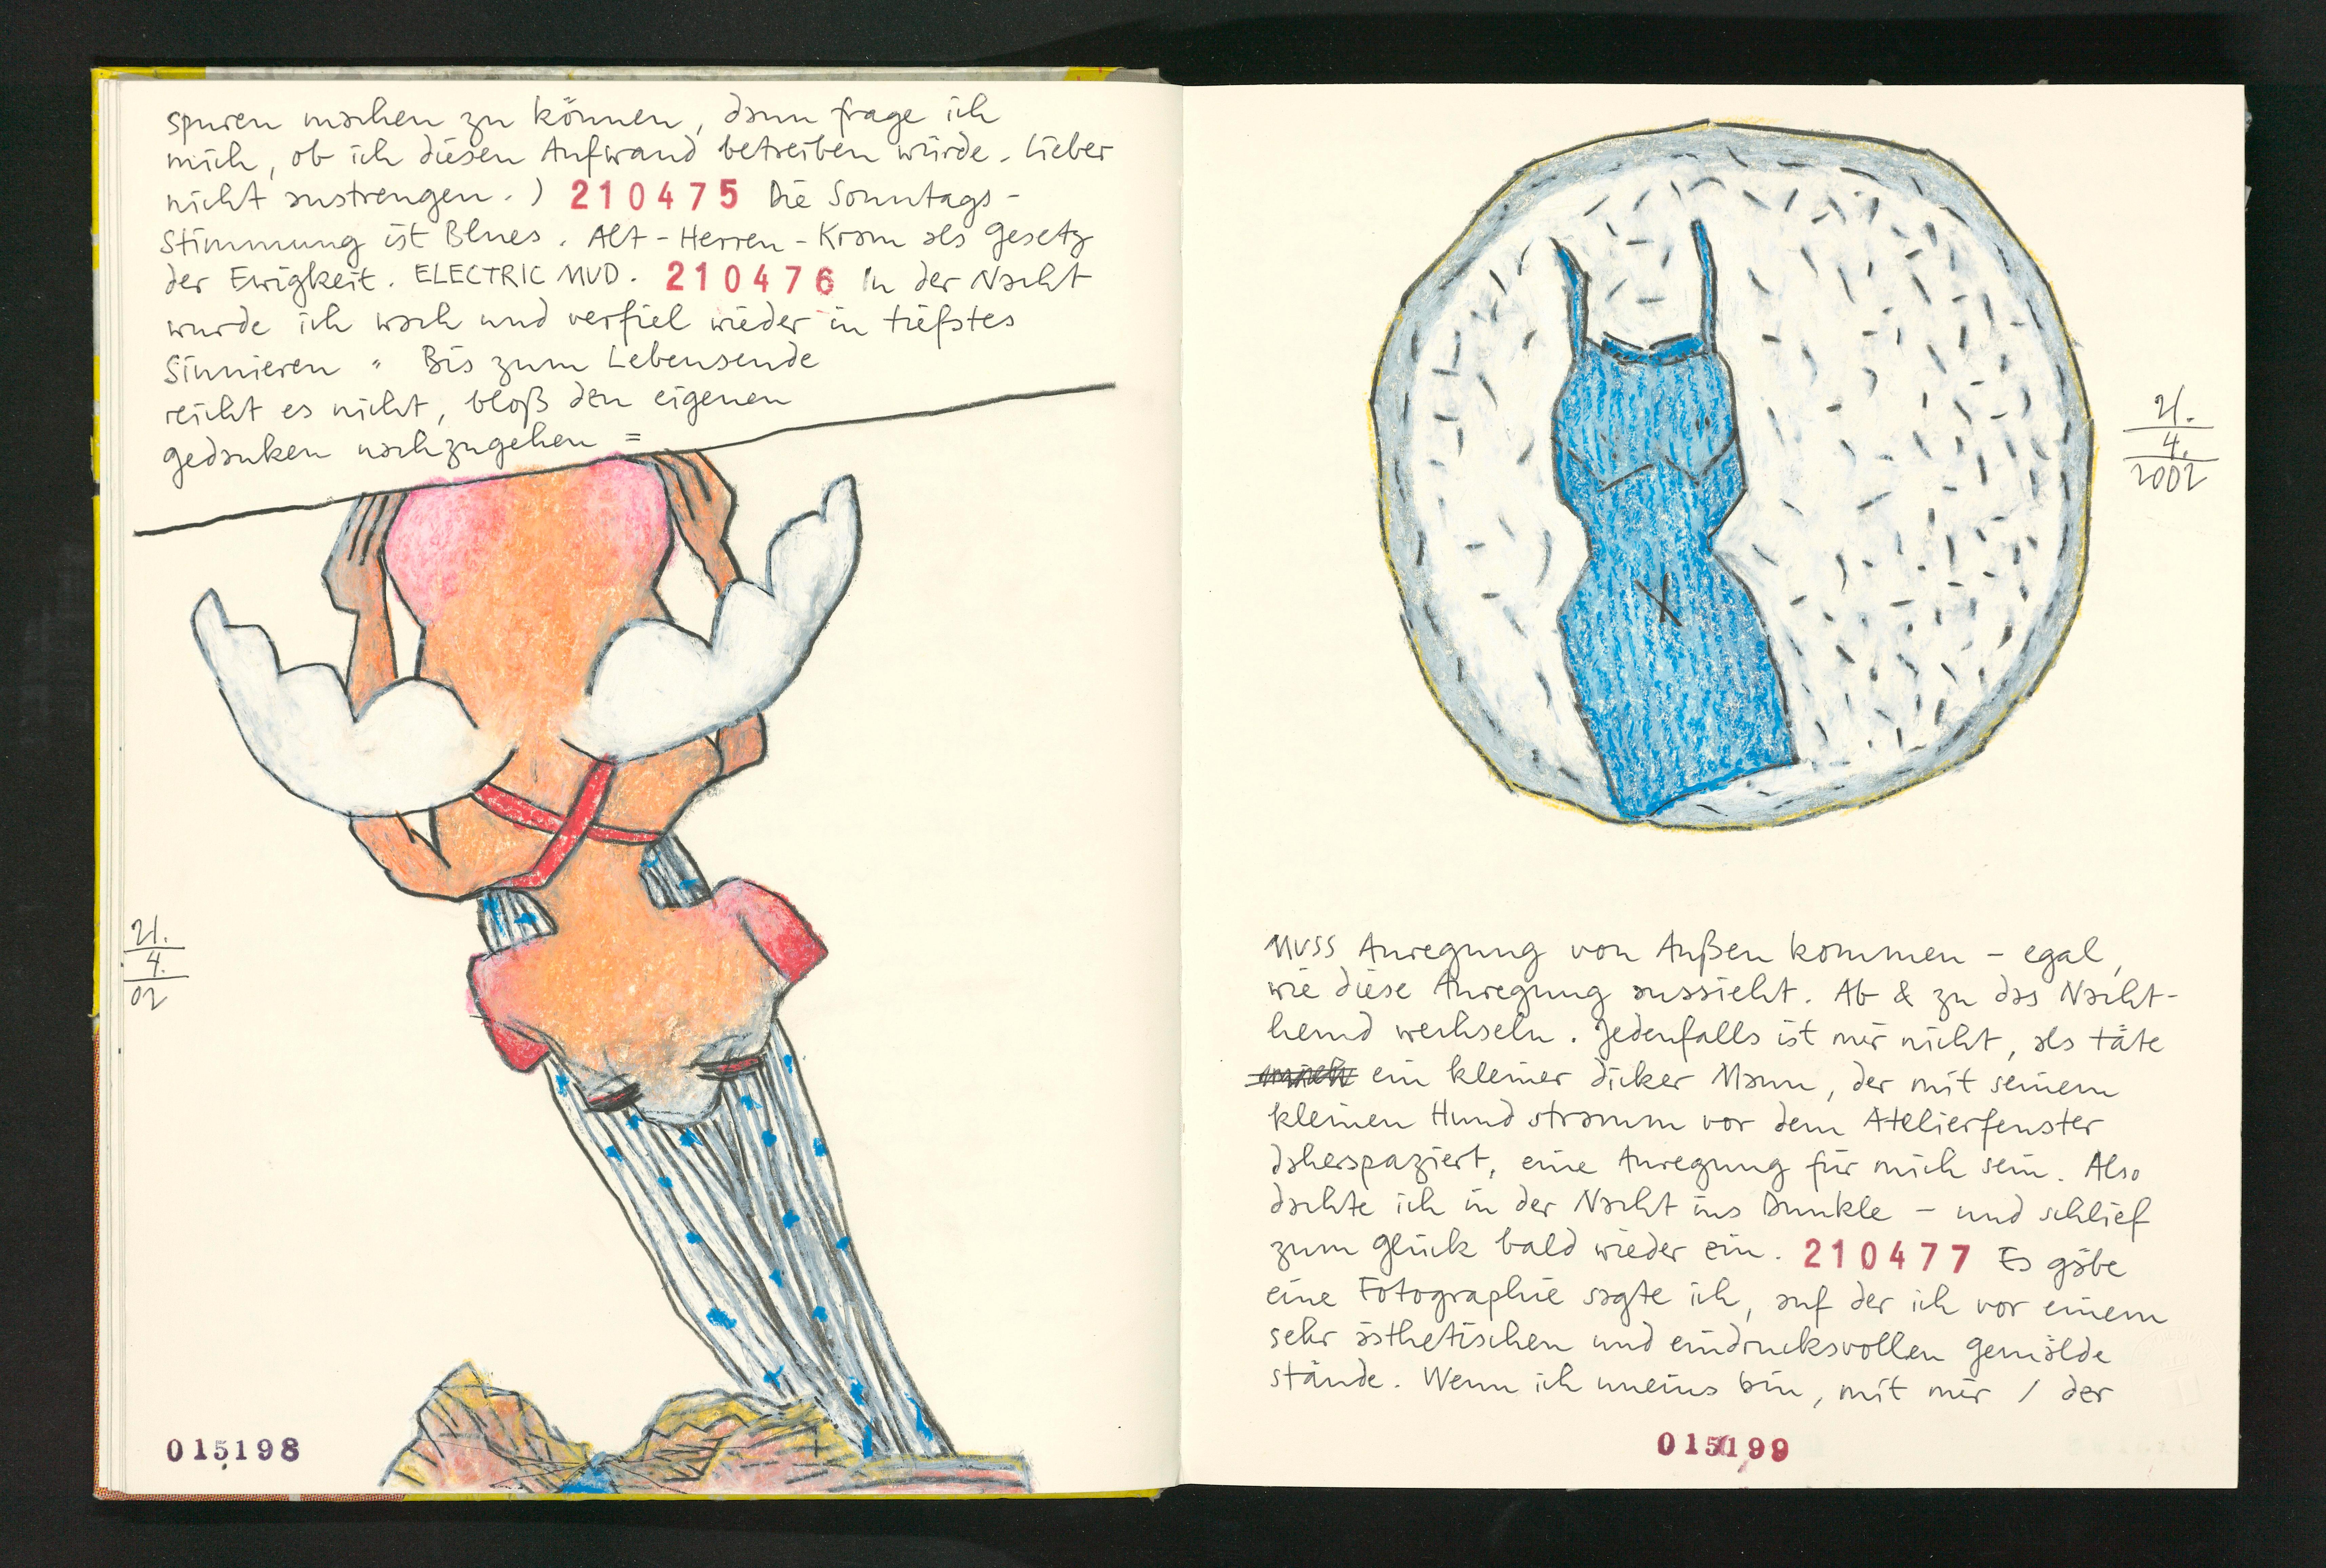 spuren machen zu können, dann frage ich
mich, ob ich diesen Aufwand betreiben würde. Lieber
nicht anstrengen.) 210475 Die Sonntags-
Stimmung ist Blues. Alt-Herren-Kram als Gesetz
der Ewigkeit. ELECTRIC MUD. 210476 In der Nacht
wurde ich wach und verfiel wieder in tiefstes
Sinnieren " Bis zum Lebensende
reicht es nicht, bloß den eigenen
Gedanken nachzugehen =
21.
4.
02
015198
21.
4.
2002
MUSS Anregung von Außen kommen – egal,
wie diese Anregung aussieht. Ab & zu das Nacht-
hemd wechseln. Jedenfalls ist mir nicht, als täte
ein kleiner dicker Mann, der mit seinem
kleinen Hund stramm vor dem Atelierfenster
daherspaziert, eine Anregung für mich sein. Also
dachte ich in der Nacht ins Dunkle – und schlief
zum Glück bald wieder ein. 210477 Es gäbe
eine Fotographie sagte ich, auf der ich vor einem
sehr ästhetischen und eindrucksvollen Gemälde
stände. Wenn ich uneins bin, mit mir / der
015199